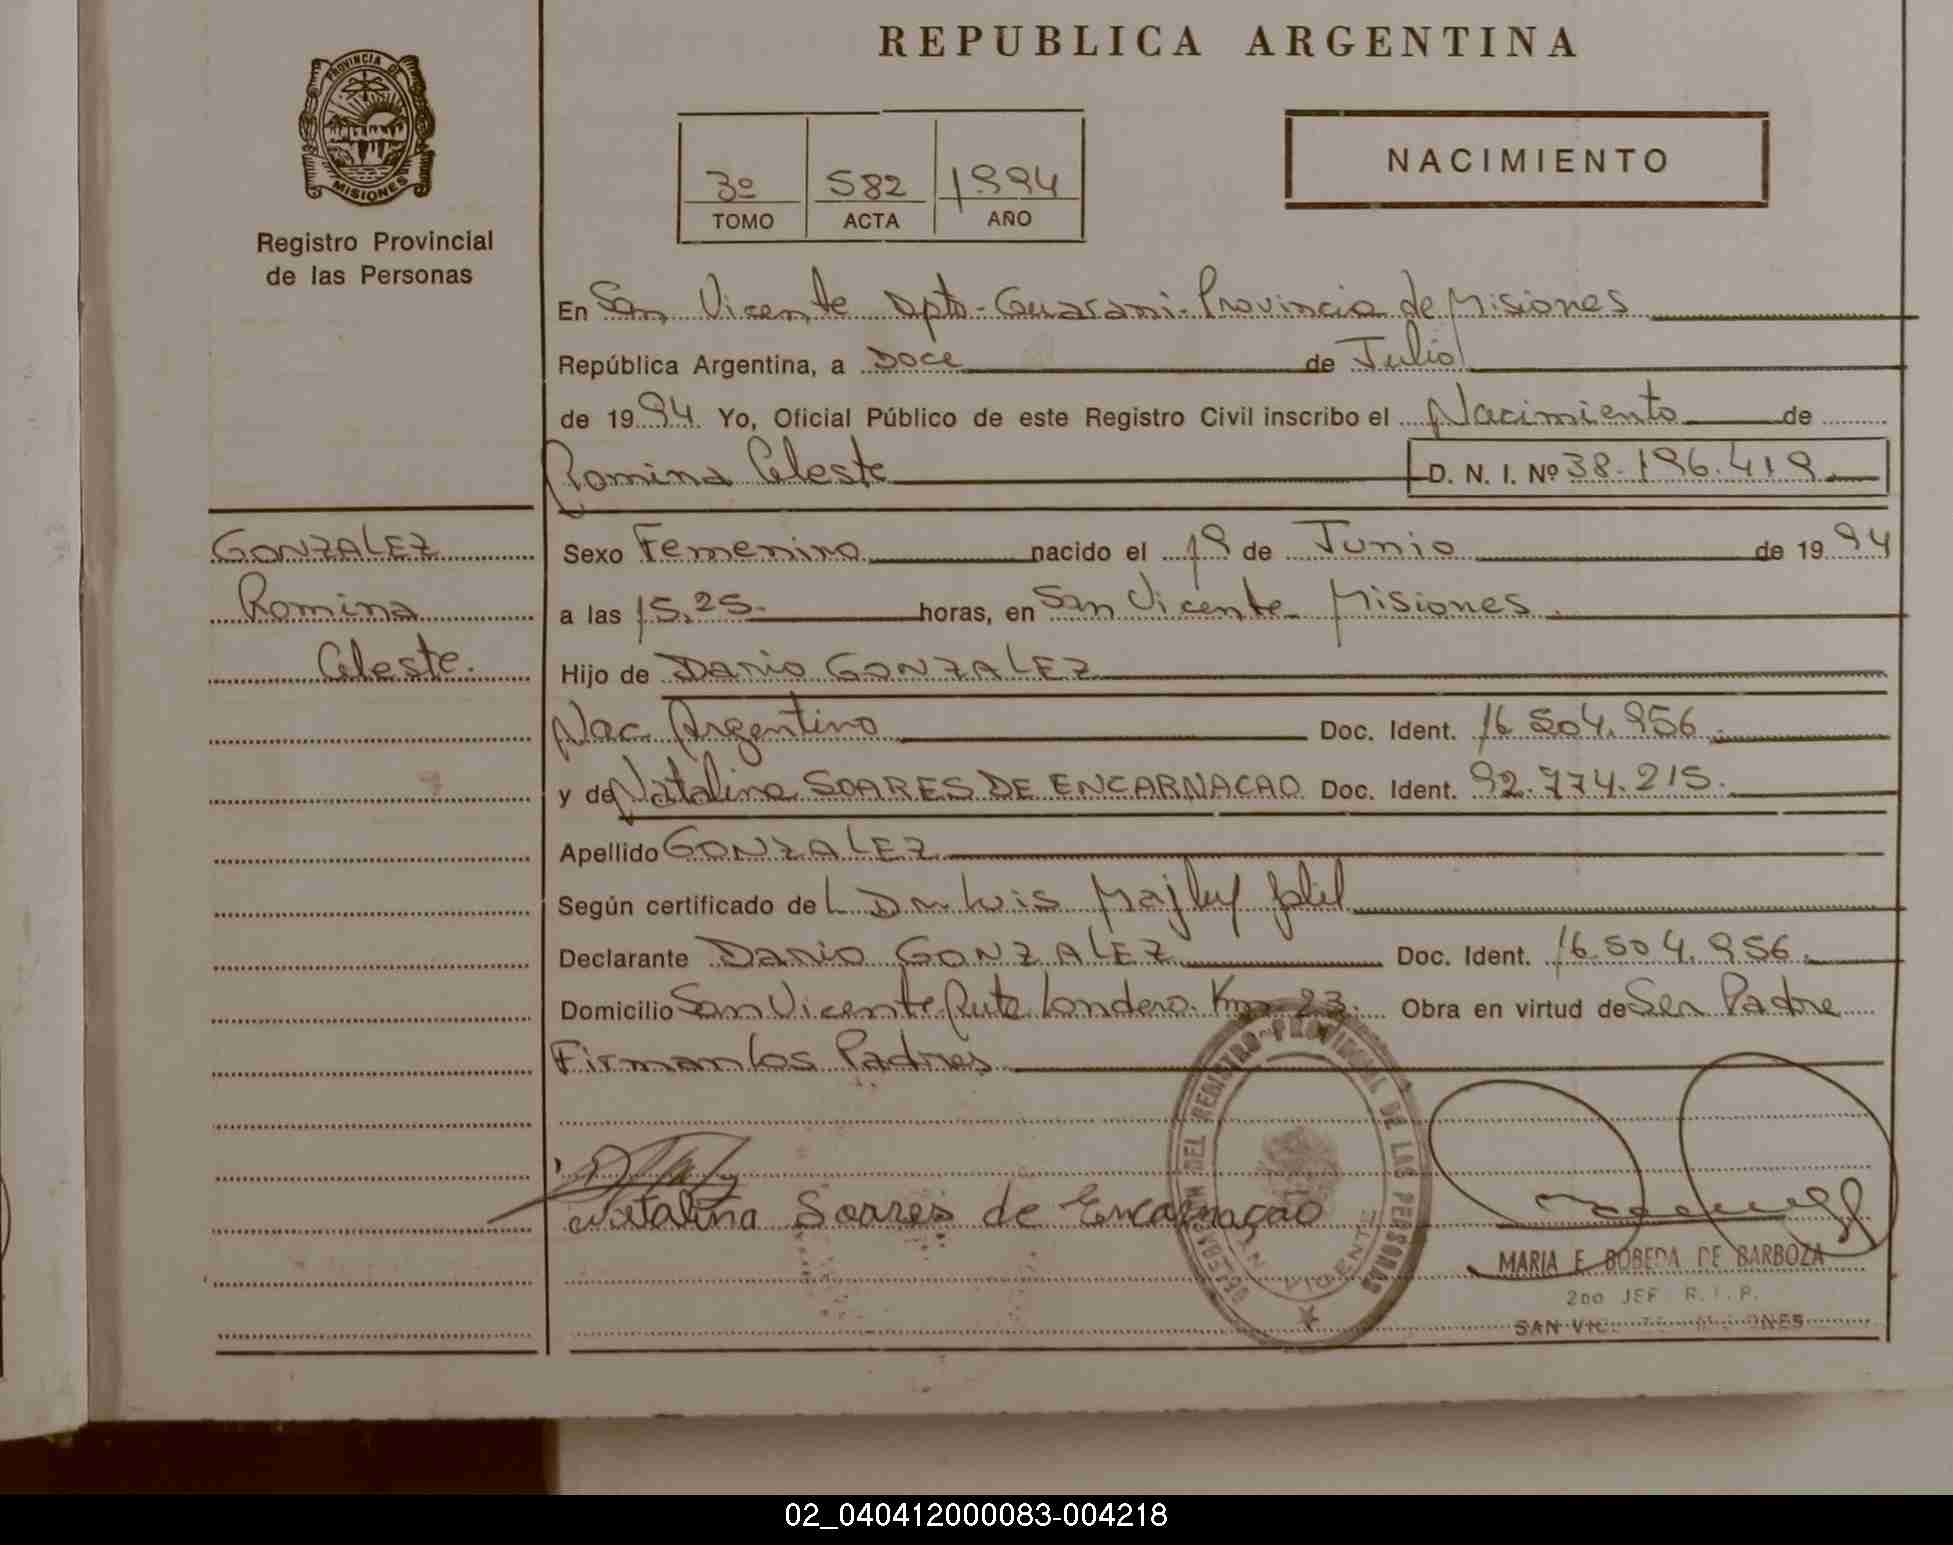 REPUBLICA ARGENTINA
PROVINCIA DE
MISIONES
Registro Provincial
de las Personas
3º 582 1994
TOMO ACTA AÑO
NACIMIENTO
En San Vicente Dpto-Guarani-Provincia de Misiones
República Argentina, a Doce de Julio
de 1994 Yo, Oficial Público de este Registro Civil inscribo el Nacimiento de
Romina Celeste D. N. I. Nº 38.196.419.
GONZALEZ
Romina
Celeste.
Sexo Femenino nacido el 19 de Junio de 1994
a las 15,25. horas, en San Vicente Misiones.
Hijo de Dario GONZALEZ
Nac. Argentino Doc. Ident. 16.504.956.
y de Natalina SOARES DE ENCARNACAO Doc. Ident. 92.774.215.
Apellido GONZALEZ
Según certificado del Dr. Luis
Declarante Dario GONZALEZ Doc. Ident. 16.504.956.
Domicilio San Vicente Ruta Londero. Km 23. Obra en virtud de Ser Padre
Firman los Padres
Natalina Soares de Encarnaçao
DEL REGISTRO PROVINCIAL DE LAS PERSONAS
SAN VICENTE
MARIA E. BOBEDA DE BARBOZA
2DO JEF. R.I.P.
SAN
02_040412000083-004218